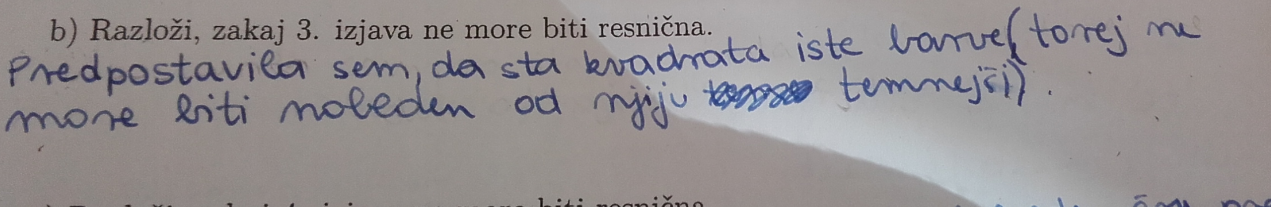 b) Razloži, zakaj 3. izjava ne more biti resnična.
Predpostavila sem, da sta kvadrata iste barve (torej ne
more biti nobeden od njiju temnejši).
biti resnična